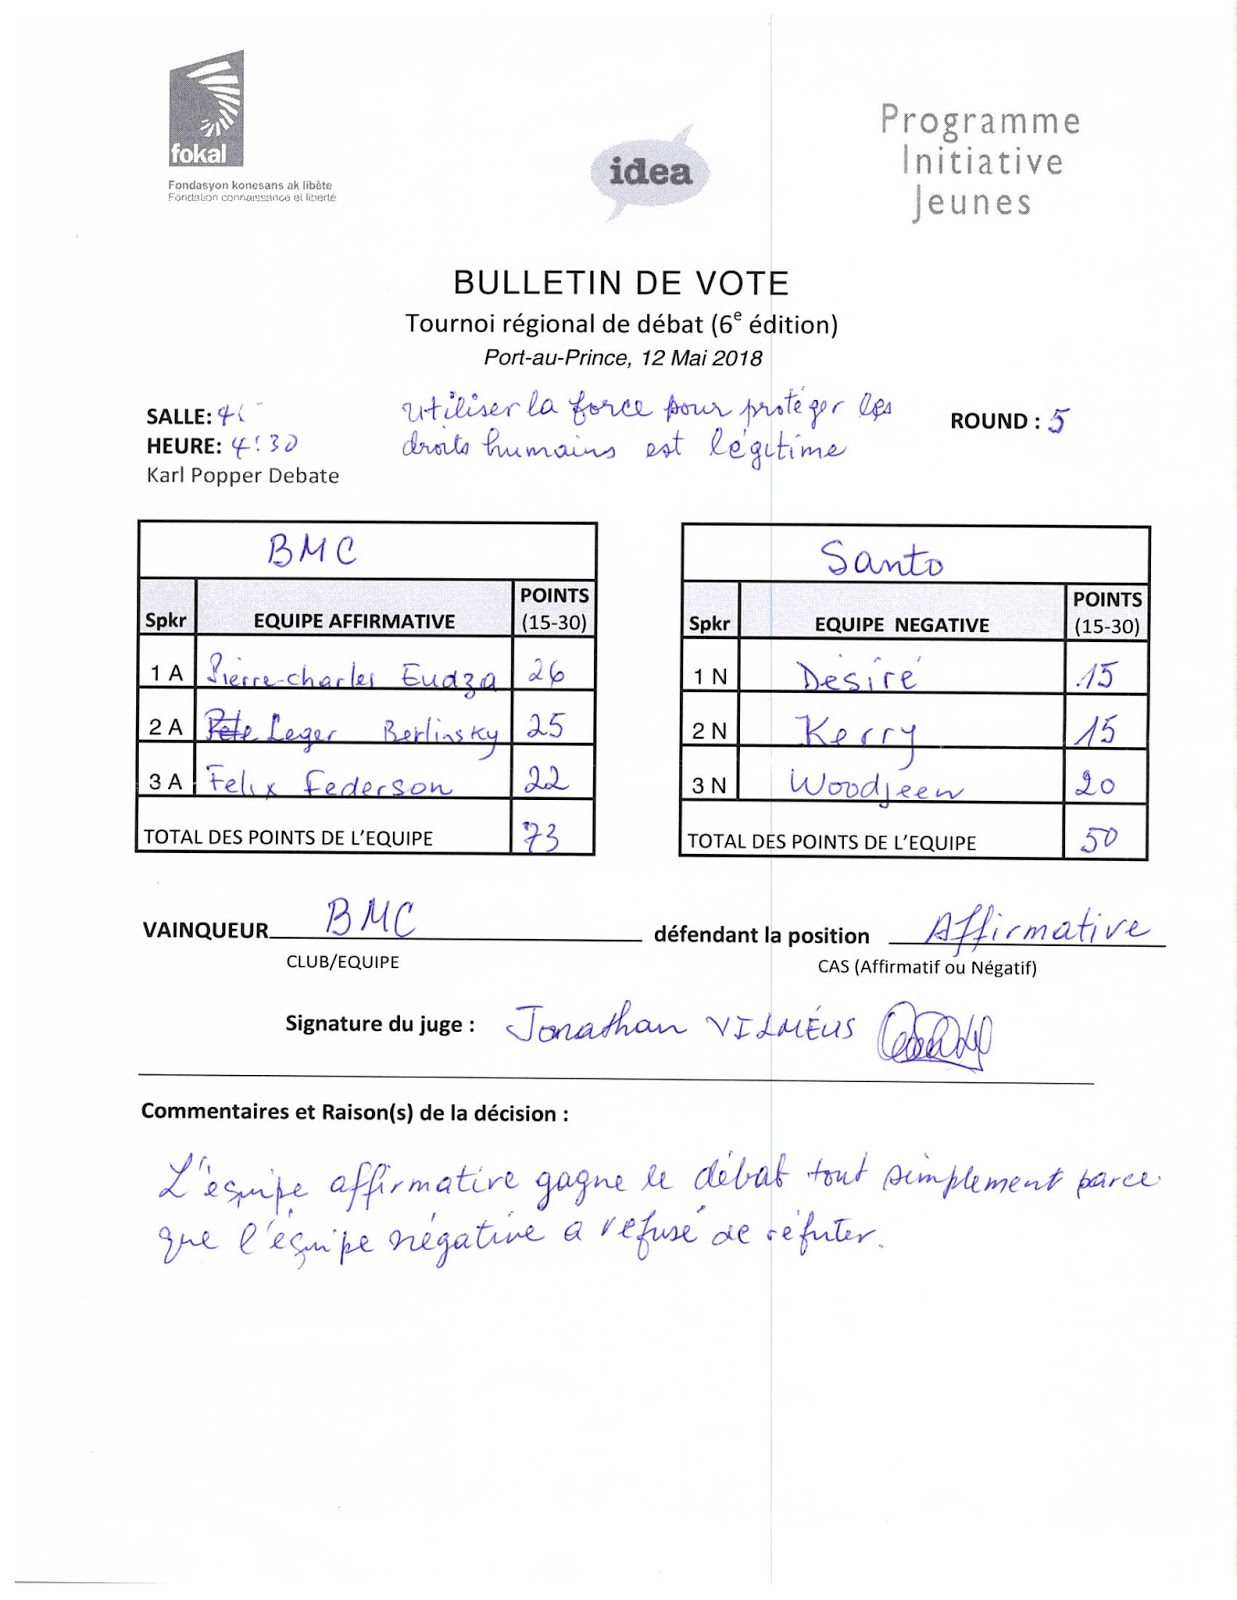 fokal
Fondasyon konesans ak libète
Fondation connaissance et liberté
idea
Programme
Initiative
Jeunes
BULLETIN DE VOTE
Tournoi régional de débat (6e édition)
Port-au-Prince, 12 Mai 2018
SALLE:
HEURE: 4:30
Karl Popper Debate
utiliser la force pour protéger les
droits humains est légitime
ROUND : 5
BMC
Spkr EQUIPE AFFIRMATIVE POINTS (15-30)
1 A Pierre-charles Eudza 26
2 A Leger Berlinsky 25
3 A Felix Federson 22
TOTAL DES POINTS DE L'EQUIPE 73
Santo
Spkr EQUIPE NEGATIVE POINTS (15-30)
1 N Désiré 15
2 N Kerry 15
3 N Woodjeen 20
TOTAL DES POINTS DE L'EQUIPE 50
VAINQUEUR BMC défendant la position Affirmative
CLUB/EQUIPE CAS (Affirmatif ou Négatif)
Signature du juge : Jonathan VILMÉUS
Commentaires et Raison(s) de la décision :
L'équipe affirmative gagne le débat tout simplement parce
que l'équipe négative a refusé de réfuter.